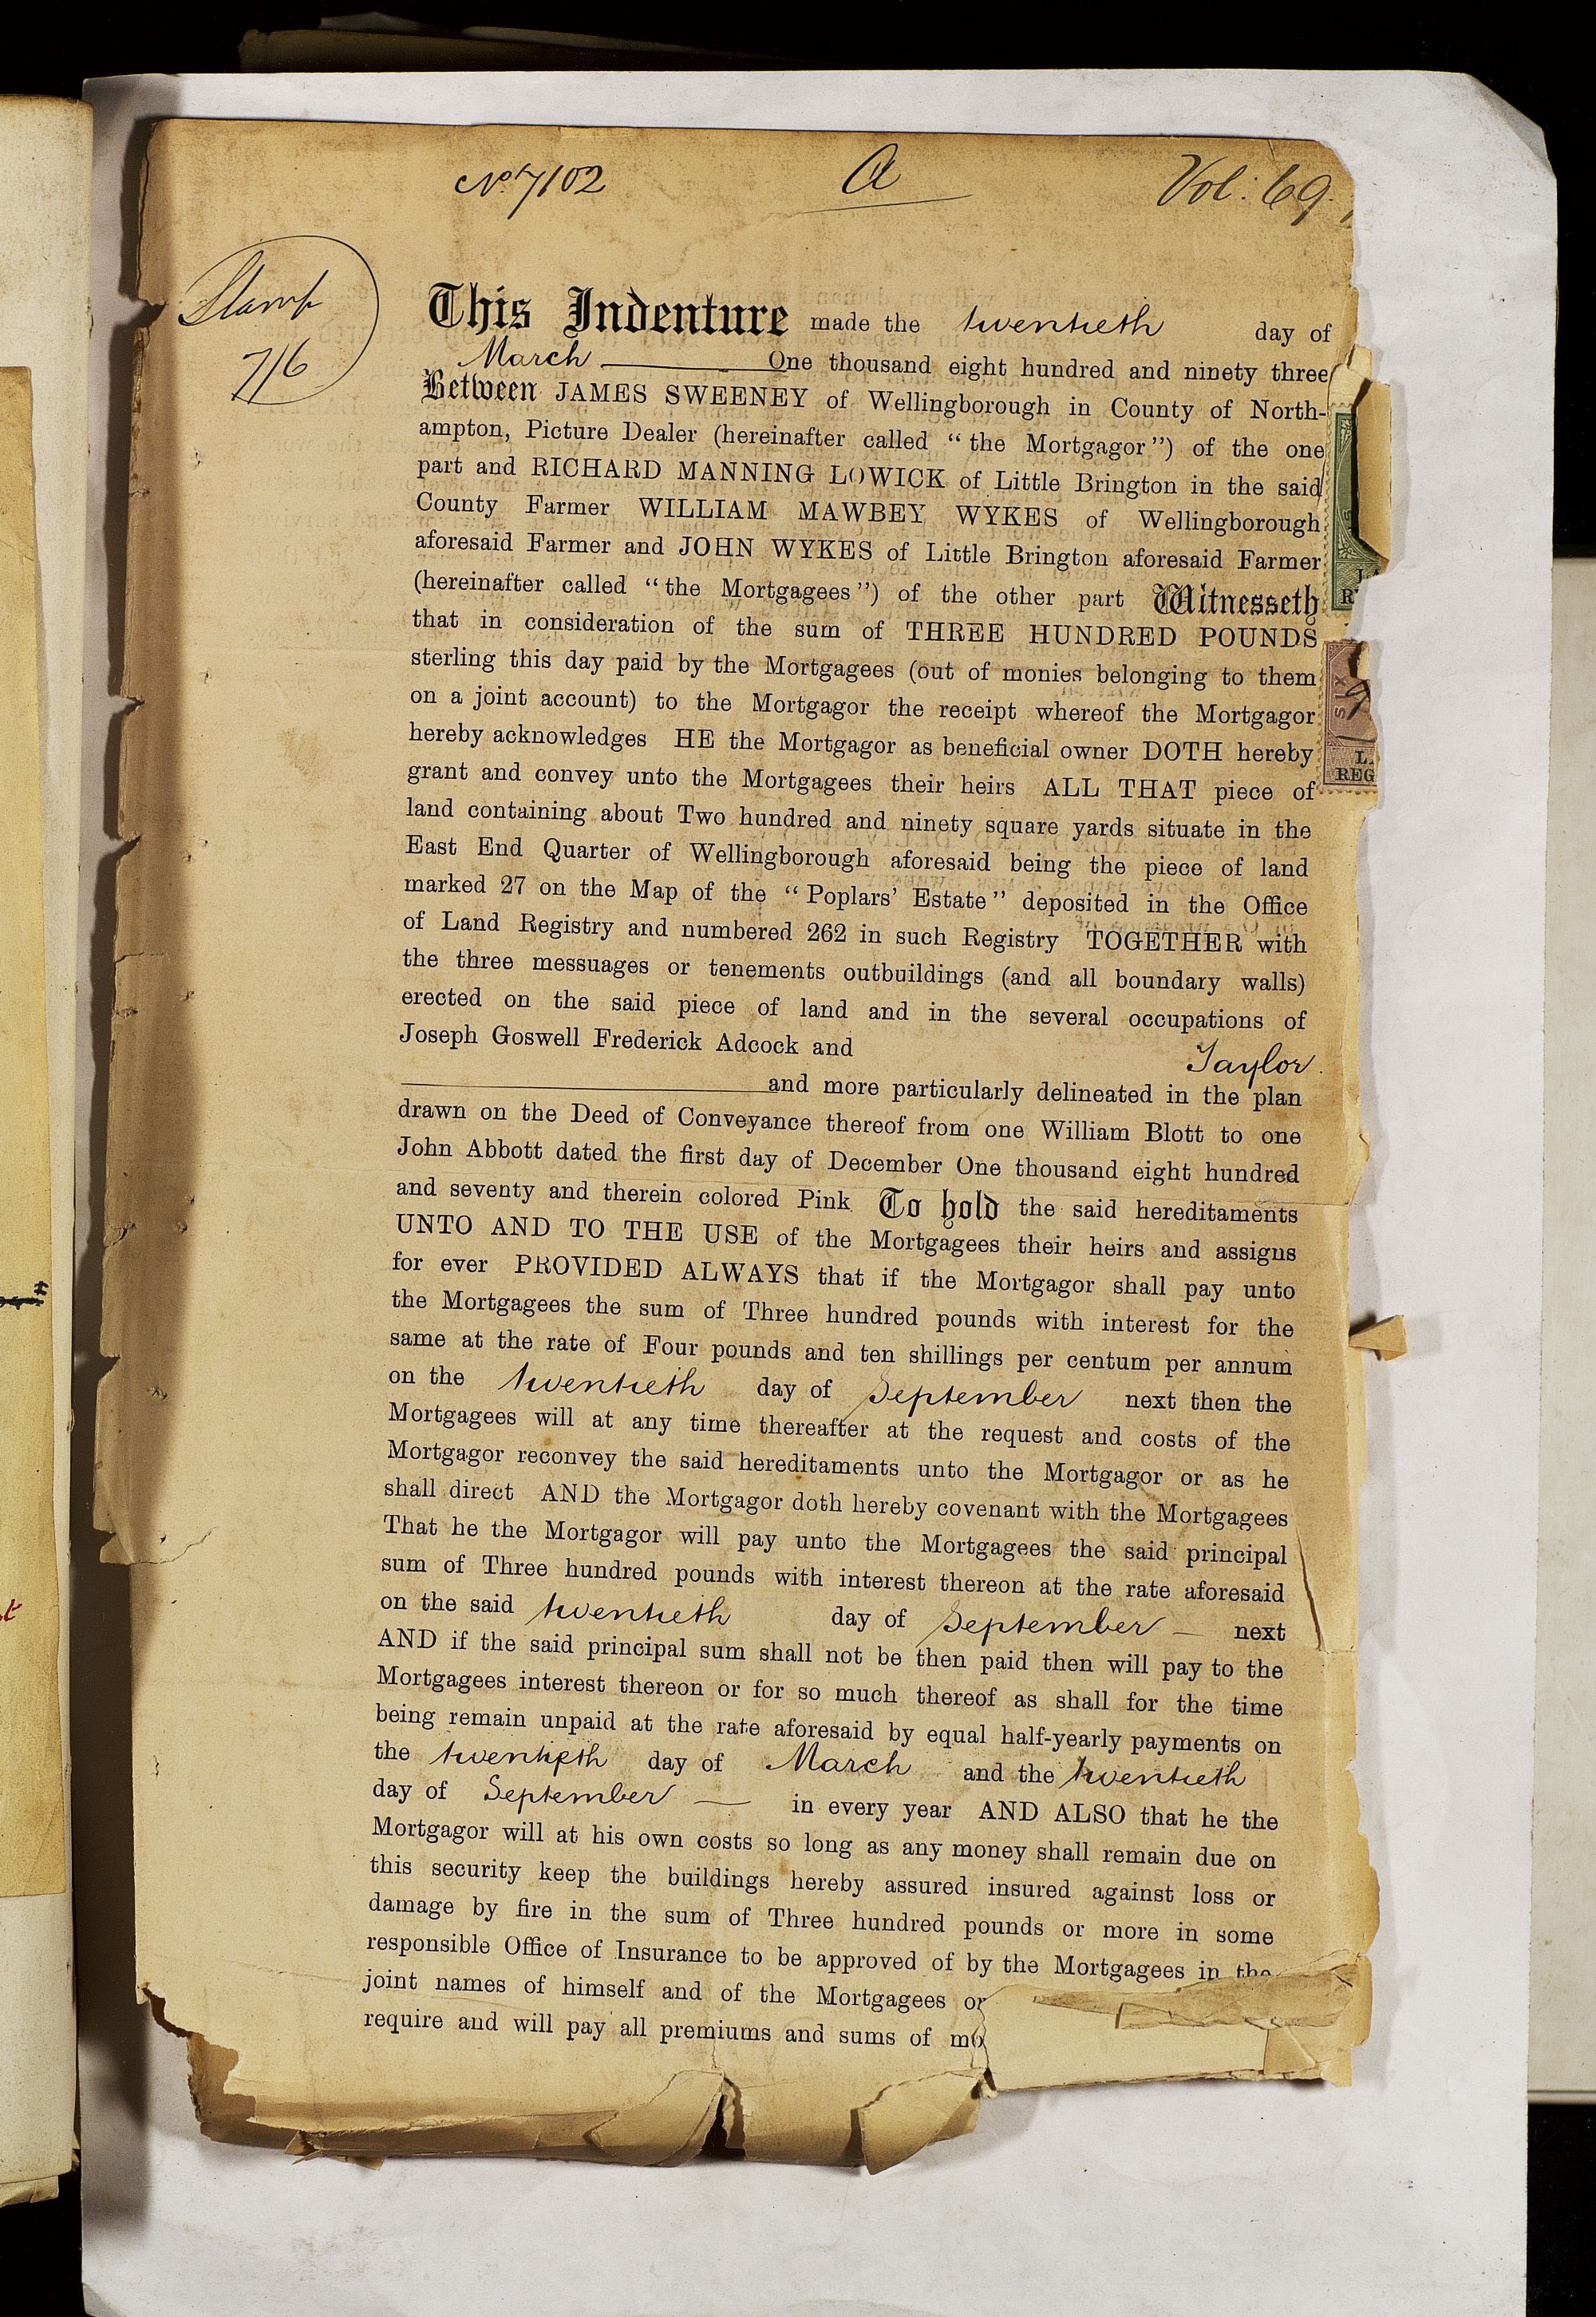 No. 7102
A
Vol: 69.
Stamp
7/6
This Indenture made the twentieth day of
March One thousand eight hundred and ninety three
Between JAMES SWEENEY of Wellingborough in County of North-
ampton, Picture Dealer (hereinafter called "the Mortgagor") of the one
part and RICHARD MANNING LOWICK of Little Brington in the said
County Farmer WILLIAM MAWBEY WYKES of Wellingborough
aforesaid Farmer and JOHN WYKES of Little Brington aforesaid Farmer
(hereinafter called "the Mortgagees") of the other part Witnesseth
that in consideration of the sum of THREE HUNDRED POUNDS
sterling this day paid by the Mortgagees (out of monies belonging to them
on a joint account) to the Mortgagor the receipt whereof the Mortgagor
hereby acknowledges HE the Mortgagor as beneficial owner DOTH hereby
grant and convey unto the Mortgagees their heirs ALL THAT piece of
land containing about Two hundred and ninety square yards situate in the
East End Quarter of Wellingborough aforesaid being the piece of land
marked 27 on the Map of the "Poplars' Estate" deposited in the Office
of Land Registry and numbered 262 in such Registry TOGETHER with
the three messuages or tenements outbuildings (and all boundary walls)
erected on the said piece of land and in the several occupations of
Joseph Goswell Frederick Adcock and Taylor.
and more particularly delineated in the plan
drawn on the Deed of Conveyance thereof from one William Blott to one
John Abbott dated the first day of December One thousand eight hundred
and seventy and therein colored Pink To hold the said hereditaments
UNTO AND TO THE USE of the Mortgagees their heirs and assigns
for ever PROVIDED ALWAYS that if the Mortgagor shall pay unto
the Mortgagees the sum of Three hundred pounds with interest for the
same at the rate of Four pounds and ten shillings per centum per annum
on the twentieth day of September next then the
Mortgagees will at any time thereafter at the request and costs of the
Mortgagor reconvey the said hereditaments unto the Mortgagor or as he
shall direct AND the Mortgagor doth hereby covenant with the Mortgagees
That he the Mortgagor will pay unto the Mortgagees the said principal
sum of Three hundred pounds with interest thereon at the rate aforesaid
on the said twentieth day of September — next
AND if the said principal sum shall not be then paid then will pay to the
Mortgagees interest thereon or for so much thereof as shall for the time
being remain unpaid at the rate aforesaid by equal half-yearly payments on
the twentieth day of March and the twentieth
day of September — in every year AND ALSO that he the
Mortgagor will at his own costs so long as any money shall remain due on
this security keep the buildings hereby assured insured against loss or
damage by fire in the sum of Three hundred pounds or more in some
responsible Office of Insurance to be approved of by the Mortgagees in the
joint names of himself and of the Mortgagees or
require and will pay all premiums and sums of mo
SIX
L.
REG